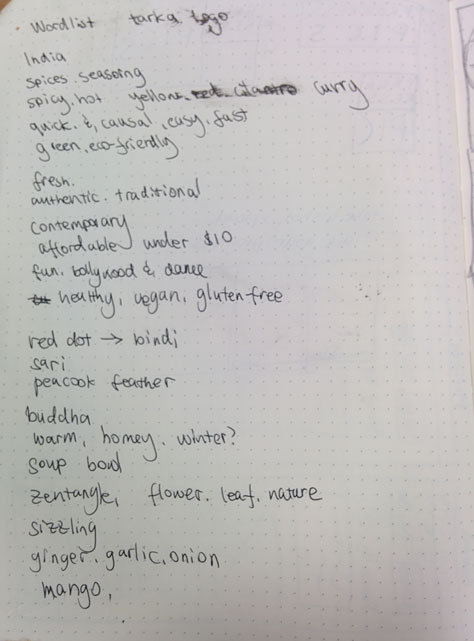 Wordlist tarka logo
India
spices. seasoing
spicy. hot yellow. red. cilantro curry
quick. &, causal, easy. fast
green. eco-friendly
fresh.
authentic. traditional
contemporary
affordable under $10
fun. bollywood & dance
healthy, vegan, gluten-free
red dot → bindi
sari
peacook feather
buddha
warm, homey. winter?
soup bowl
zentangle, flower. leaf. nature
sizzling
ginger. garlic. onion
mango,